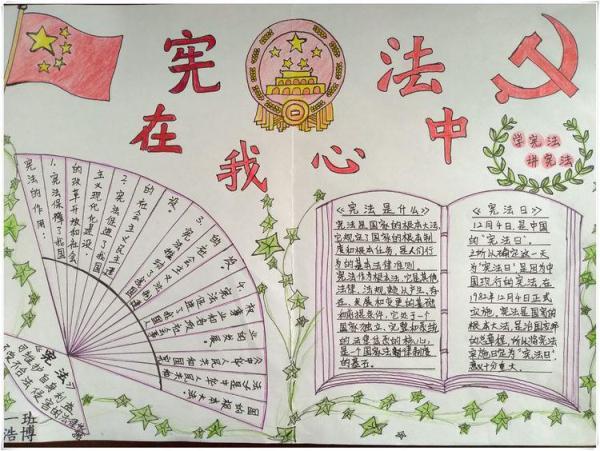 宪法
在我心中
学宪法
讲宪法
宪法的作用：
1.宪法保障了我国
的改革开放和社会
主义现代化建设；
2.宪法促进了我国
的社会主义民主建
设；
3.宪法推动了我国
的社会主义法制
建设；
4.宪法促进了我国人
权事业和各项社会事
业的发展。
《宪法》
《宪法是什么》
宪法是国家的根本大法，
它规定了国家的根本制
度和根本任务，是人们行
为的基本法律准则。
宪法作为根本法，它是其他
法律、法规赖以产生、存
在、发展和变更的基础
和前提条件，它处于一个
国家独立、完整和系统
的法律体系的核心，
是一个国家法制律制度
的基石。
《宪法日》
12月4日，是中国
的“宪法日”。
之所以确定这一天
为“宪法日”，是因为中
国现行的宪法，在
1982年12月4日正式
实施。宪法是国家的
根本大法，是治国安邦
的总章程，所以将宪法
实施日定为“宪法日”，
意义十分重大。
一班
浩博